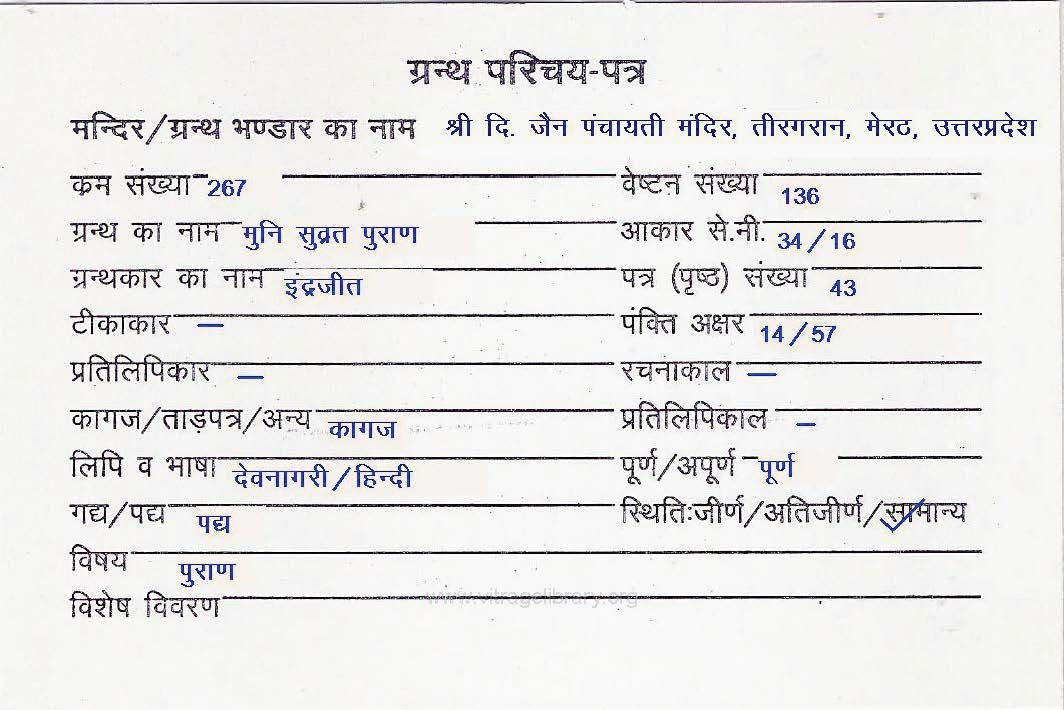 ग्रन्थ परिचय-पत्र
मन्दिर/ग्रन्थ भण्डार का नाम श्री दि. जैन पंचायती मंदिर, तीरगरान, मेरठ, उत्तरप्रदेश
क्रम संख्या 267 वेष्टन संख्या 136
ग्रन्थ का नाम मुनि सुव्रत पुराण आकार से.नी. 34/16
ग्रन्थकार का नाम इंद्रजीत पत्र (पृष्ठ) संख्या 43
टीकाकार — पंक्ति अक्षर 14/57
प्रतिलिपिकार — रचनाकाल —
कागज/ताड़पत्र/अन्य कागज प्रतिलिपिकाल —
लिपि व भाषा देवनागरी/हिन्दी पूर्ण/अपूर्ण पूर्ण
गद्य/पद्य पद्य स्थितिःजीर्ण/अतिजीर्ण/सामान्य
विषय पुराण
विशेष विवरण
www.vitragelibrary.org